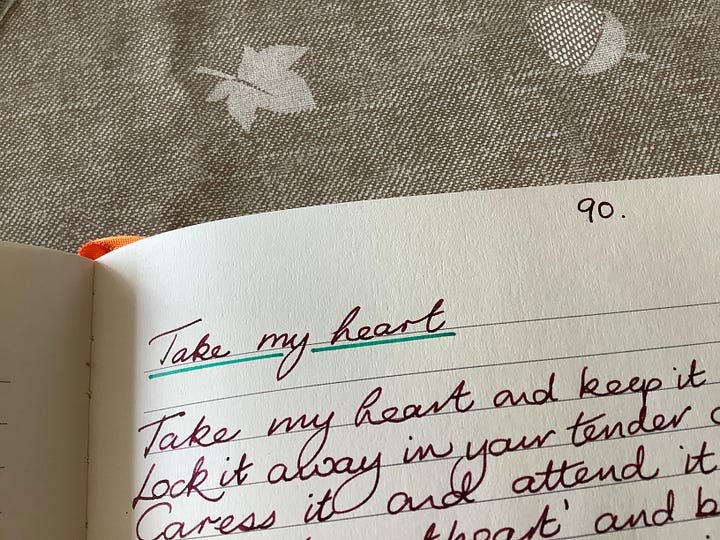 90.
Take my heart
Take my heart and keep it
Lock it away in your tender
Caress it and attend it
heart' and b